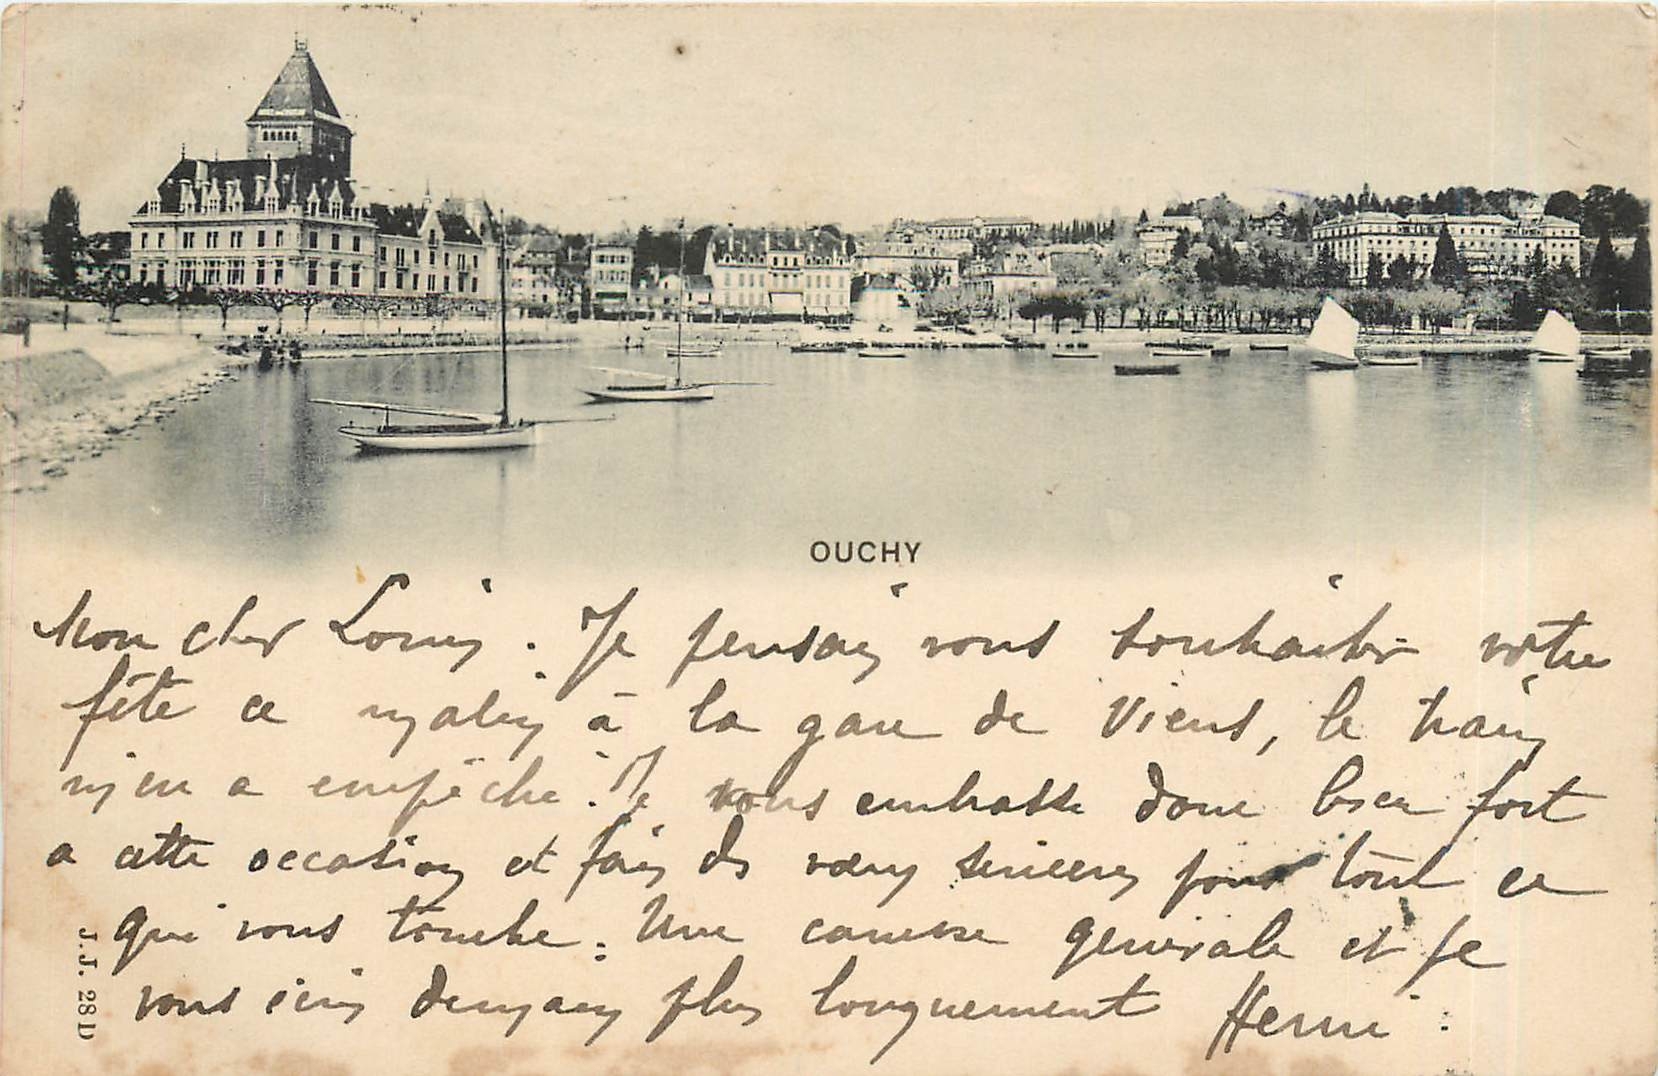 OUCHY
Mon cher Louis. Je pensais vous souhaiter votre
fête ce matin à la gare de Viens, le train
m'en a empêché. Je vous embrasse donc bien fort
a cette occasion et fais des vœux sincères pour tout ce
qui vous touche. Une caresse générale et je
vous écris demain plus longuement Henri.
J.J. 28 D